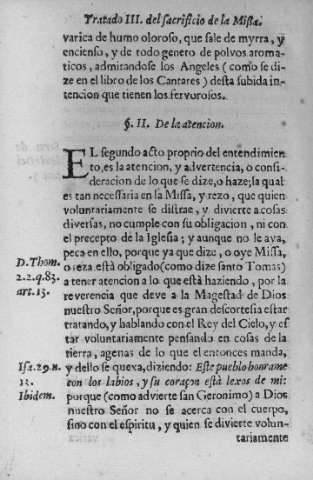 Tratado III. del sacrificio de la Missa.
varica de humo oloroso, que sale de myrra, y
encienso, y de todo genero de polvos aroma-
ticos, admirandose los Angeles (como se di-
ze en el libro de los Cantares) desta subida in-
tencion que tienen los fervorosos.
§. II. De la atencion.
EL segundo acto proprio del entendimien
to, es la atencion, y advertencia, o consi-
deracion de lo que se dize, o haze; la qual
es tan necessaria en la Missa, y rezo, que quien
voluntariamente se distrae, y divierte a cosas
diversas, no cumple con su obligacion, ni con
el precepto de la Iglesia; y aunque no le aya,
peca en ello, porque ya que dize, o oye Missa,
D. Thom. o reza está obligado (como dize santo Tomas)
2.2.q.83. a tener atencion a lo que está haziendo, por la
art.13. reverencia que deve a la Magestad de Dios
nuestro Señor, porque es gran descortesia estar
tratando, y hablando con el Rey del Cielo, y es
tar voluntariamente pensando en cosas de la
tierra, agenas de lo que el entonces manda,
Isa.29.n. y dello se quexa, diziendo: Este pueblo honrame
12. con los labios, y su coraçon està lexos de mi:
Ibidem. porque (como advierte san Geronimo) a Dios
nuestro Señor no se acerca con el cuerpo,
sino con el espiritu, y quien se divierte volun-
tariamente